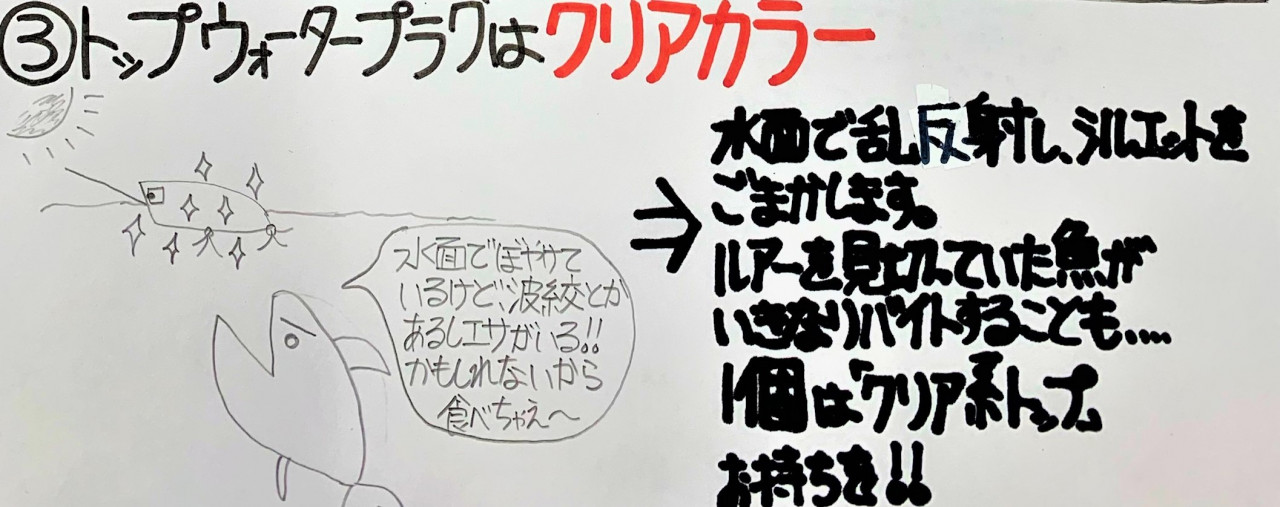 ③トップウォータープラグはクリアカラー
水面でぼやけて
いるけど、波紋とか
あるしエサがいる!!
かもしれないから
食べちゃえ〜
⇒
水面で乱反射し、シルエットを
ごまかします。
ルアーを見切っていた魚が
いきなりバイトすることも....
1個は「クリア系トップ」
お持ちを!!